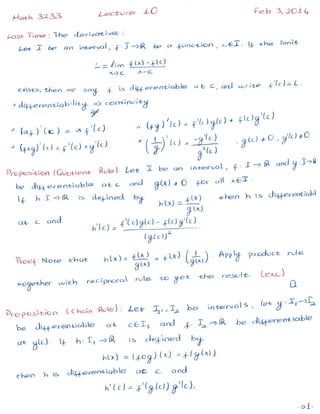 Math 3233 Lecture 10 Feb 3, 2014
Last Time: The derivative:
Let I be an interval, f: I→ℝ be a function, c∈I. If the limit
L = lim_{x→c} (f(x)-f(c))/(x-c)
exists, then we say f is differentiable at c, and write f'(c)=L.
* differentiability ⇒ continuity
* (αf)'(c) = α f'(c) * (fg)'(c) = f'(c)g(c) + f(c)g'(c)
* (f+g)'(c) = f'(c)+g'(c) * (1/g)'(c) = -g'(c)/g²(c) , g(c)≠0, g'(c)≠0
Proposition (Quotient Rule) Let I be an interval, f: I→ℝ and g: I→ℝ
be differentiable at c and g(x)≠0 for all x∈I.
If h: I→ℝ is defined by h(x) = f(x)/g(x) then h is differentiable
at c and h'(c) = (f'(c)g(c) - f(c)g'(c))/(g(c))²
Proof Note that h(x) = f(x)/g(x) = f(x)·(1/g(x)). Apply product rule
together with reciprocal rule to get the result. (exc)
Proposition (Chain Rule): Let I₁, I₂ be intervals, let g: I₁→I₂
be differentiable at c∈I₁ and f: I₂→ℝ be differentiable
at g(c). If h: I₁→ℝ is defined by
h(x) = (fog)(x) = f(g(x))
then h is differentiable at c and
h'(c) = f'(g(c)) g'(c).
-01-